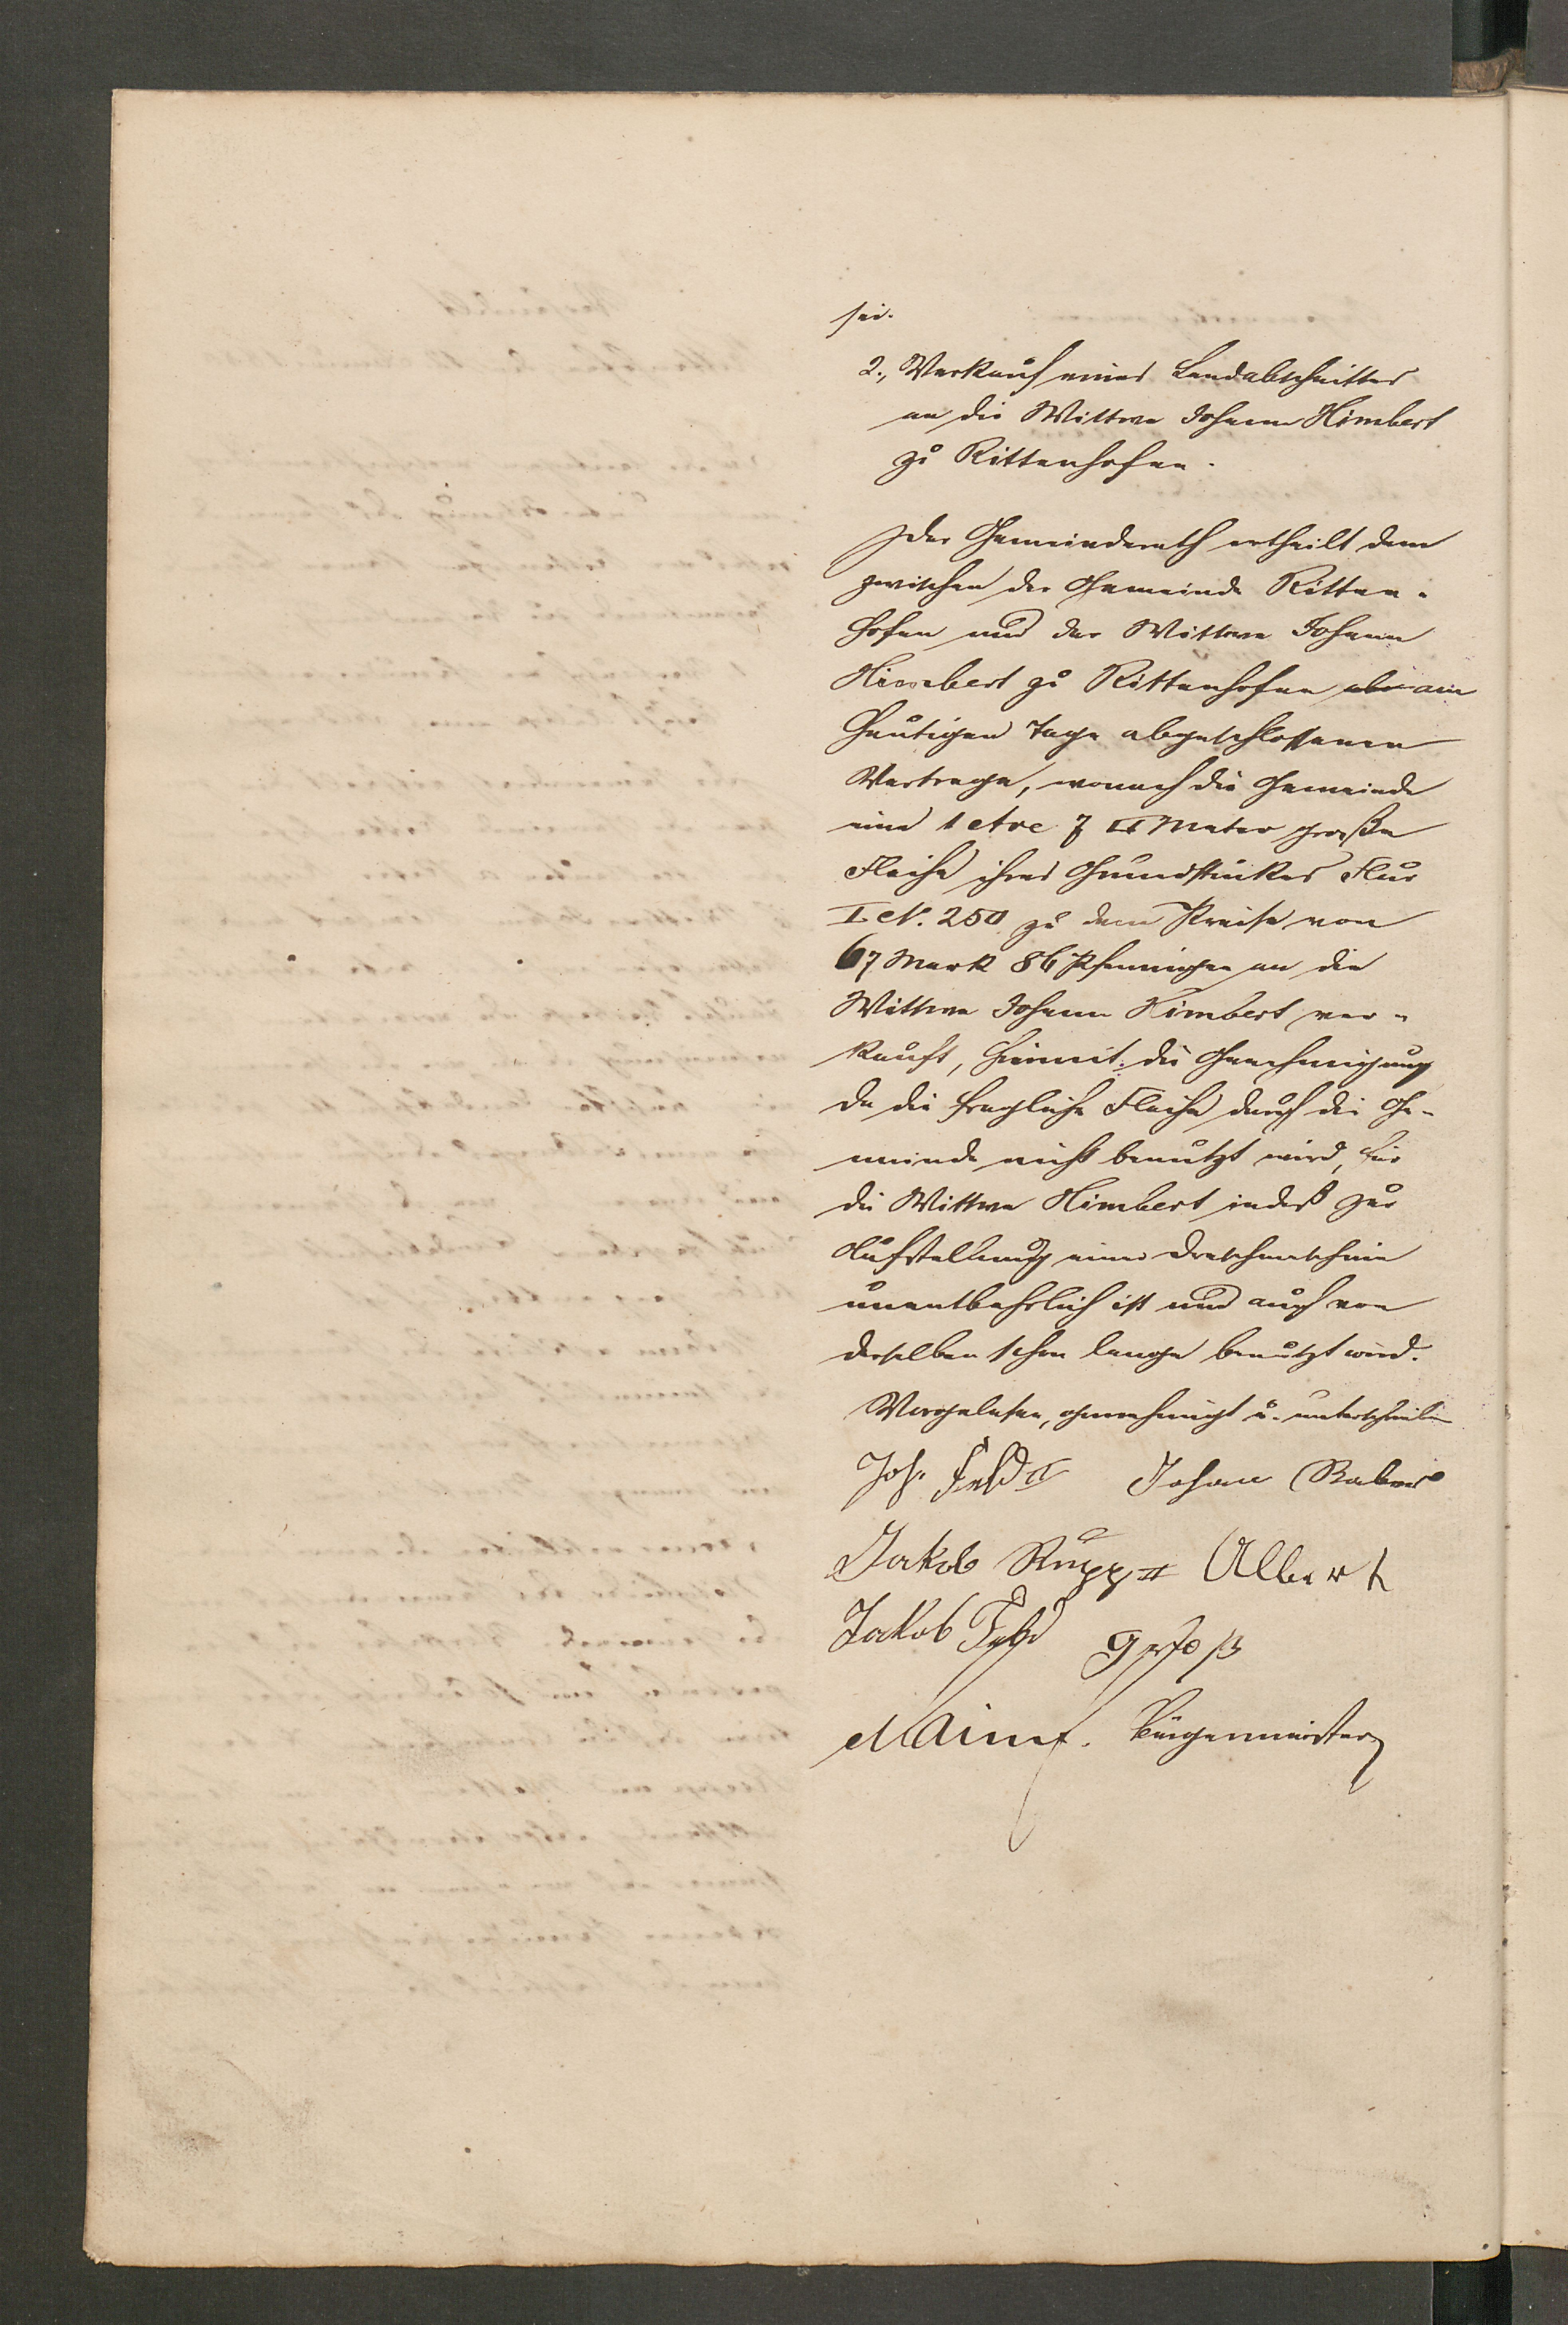 sei.
2., Verkauf eines Landabschnittes
an die Wittwe Johann Himbert
zu Rittenhofen.
Der Gemeinderath ertheilt dem
zwischen der Gemeinde Ritten-
hofen und der Wittwe Johann
Himbert zu Rittenhofen am
heutigen Tage abgeschlossenen
Vertrage, wonach die Gemeinde
eine 1 Are 7 □ Meter große
Fläche ihres Grundstückes Flur
I N. 250 zu dem Preise von
67 Mark 86 Pfennigen an die
Wittwe Johann Himbert ver-
kauft, hiermit die Genehmigung
da die fragliche Fläche durch die Ge-
meinde nicht benutzt wird, für
die Wittwe Himbert indeß zur
Aufstellung einer Dreschmaschine
unentbehrlich ist und auch von
derselben schon lange benutzt wird.
Vorgelesen, genehmigt u. unterschrieben
Joh. Feld II Johann
Jakob Rupp II Albert
Jakob Feld Groß
Bürgermeister